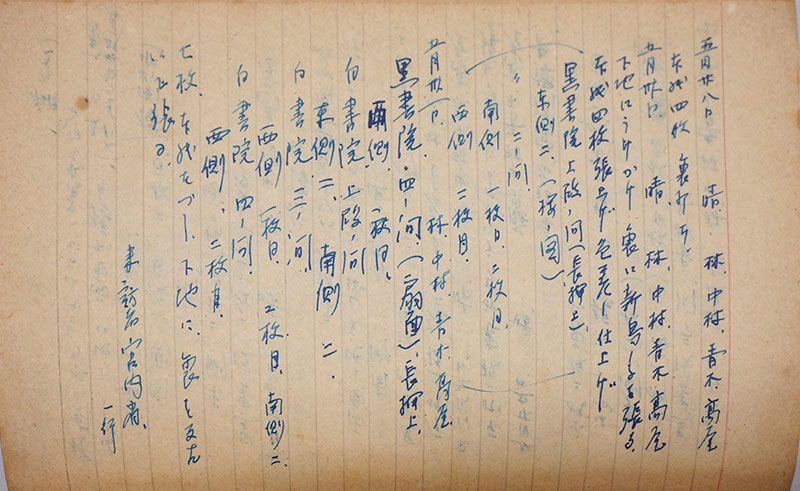 五月廿八日 晴 林、中村、青木、高屋
本紙四枚 裏打チ
五月卅日 晴 林、中村、青木、高屋
下地ニウケカケ 裏ニ新鳥ノ子ヲ張ル
本紙四枚張上ゲ 色差シ仕上ゲ
黒書院上段ノ間(長押上)
東側 二、(桜ノ図)
〃 二ノ間、
南側 一枚目、二枚目、
西側 二枚目、
五月卅一日、 林、中村、青木、高屋
黒書院、四ノ間、(扇面)、長押上、
西側、一枚目、
白書院上段ノ間
東側 二、南側 二、
白書院、三ノ間、
西側 一枚目、二枚目、南側 二
白書院、四ノ間、
西側、二枚目、
七枚、本紙ヲハヅシ、下地ニ、裏ヲ
張ル
来訪者宮内省、
一行